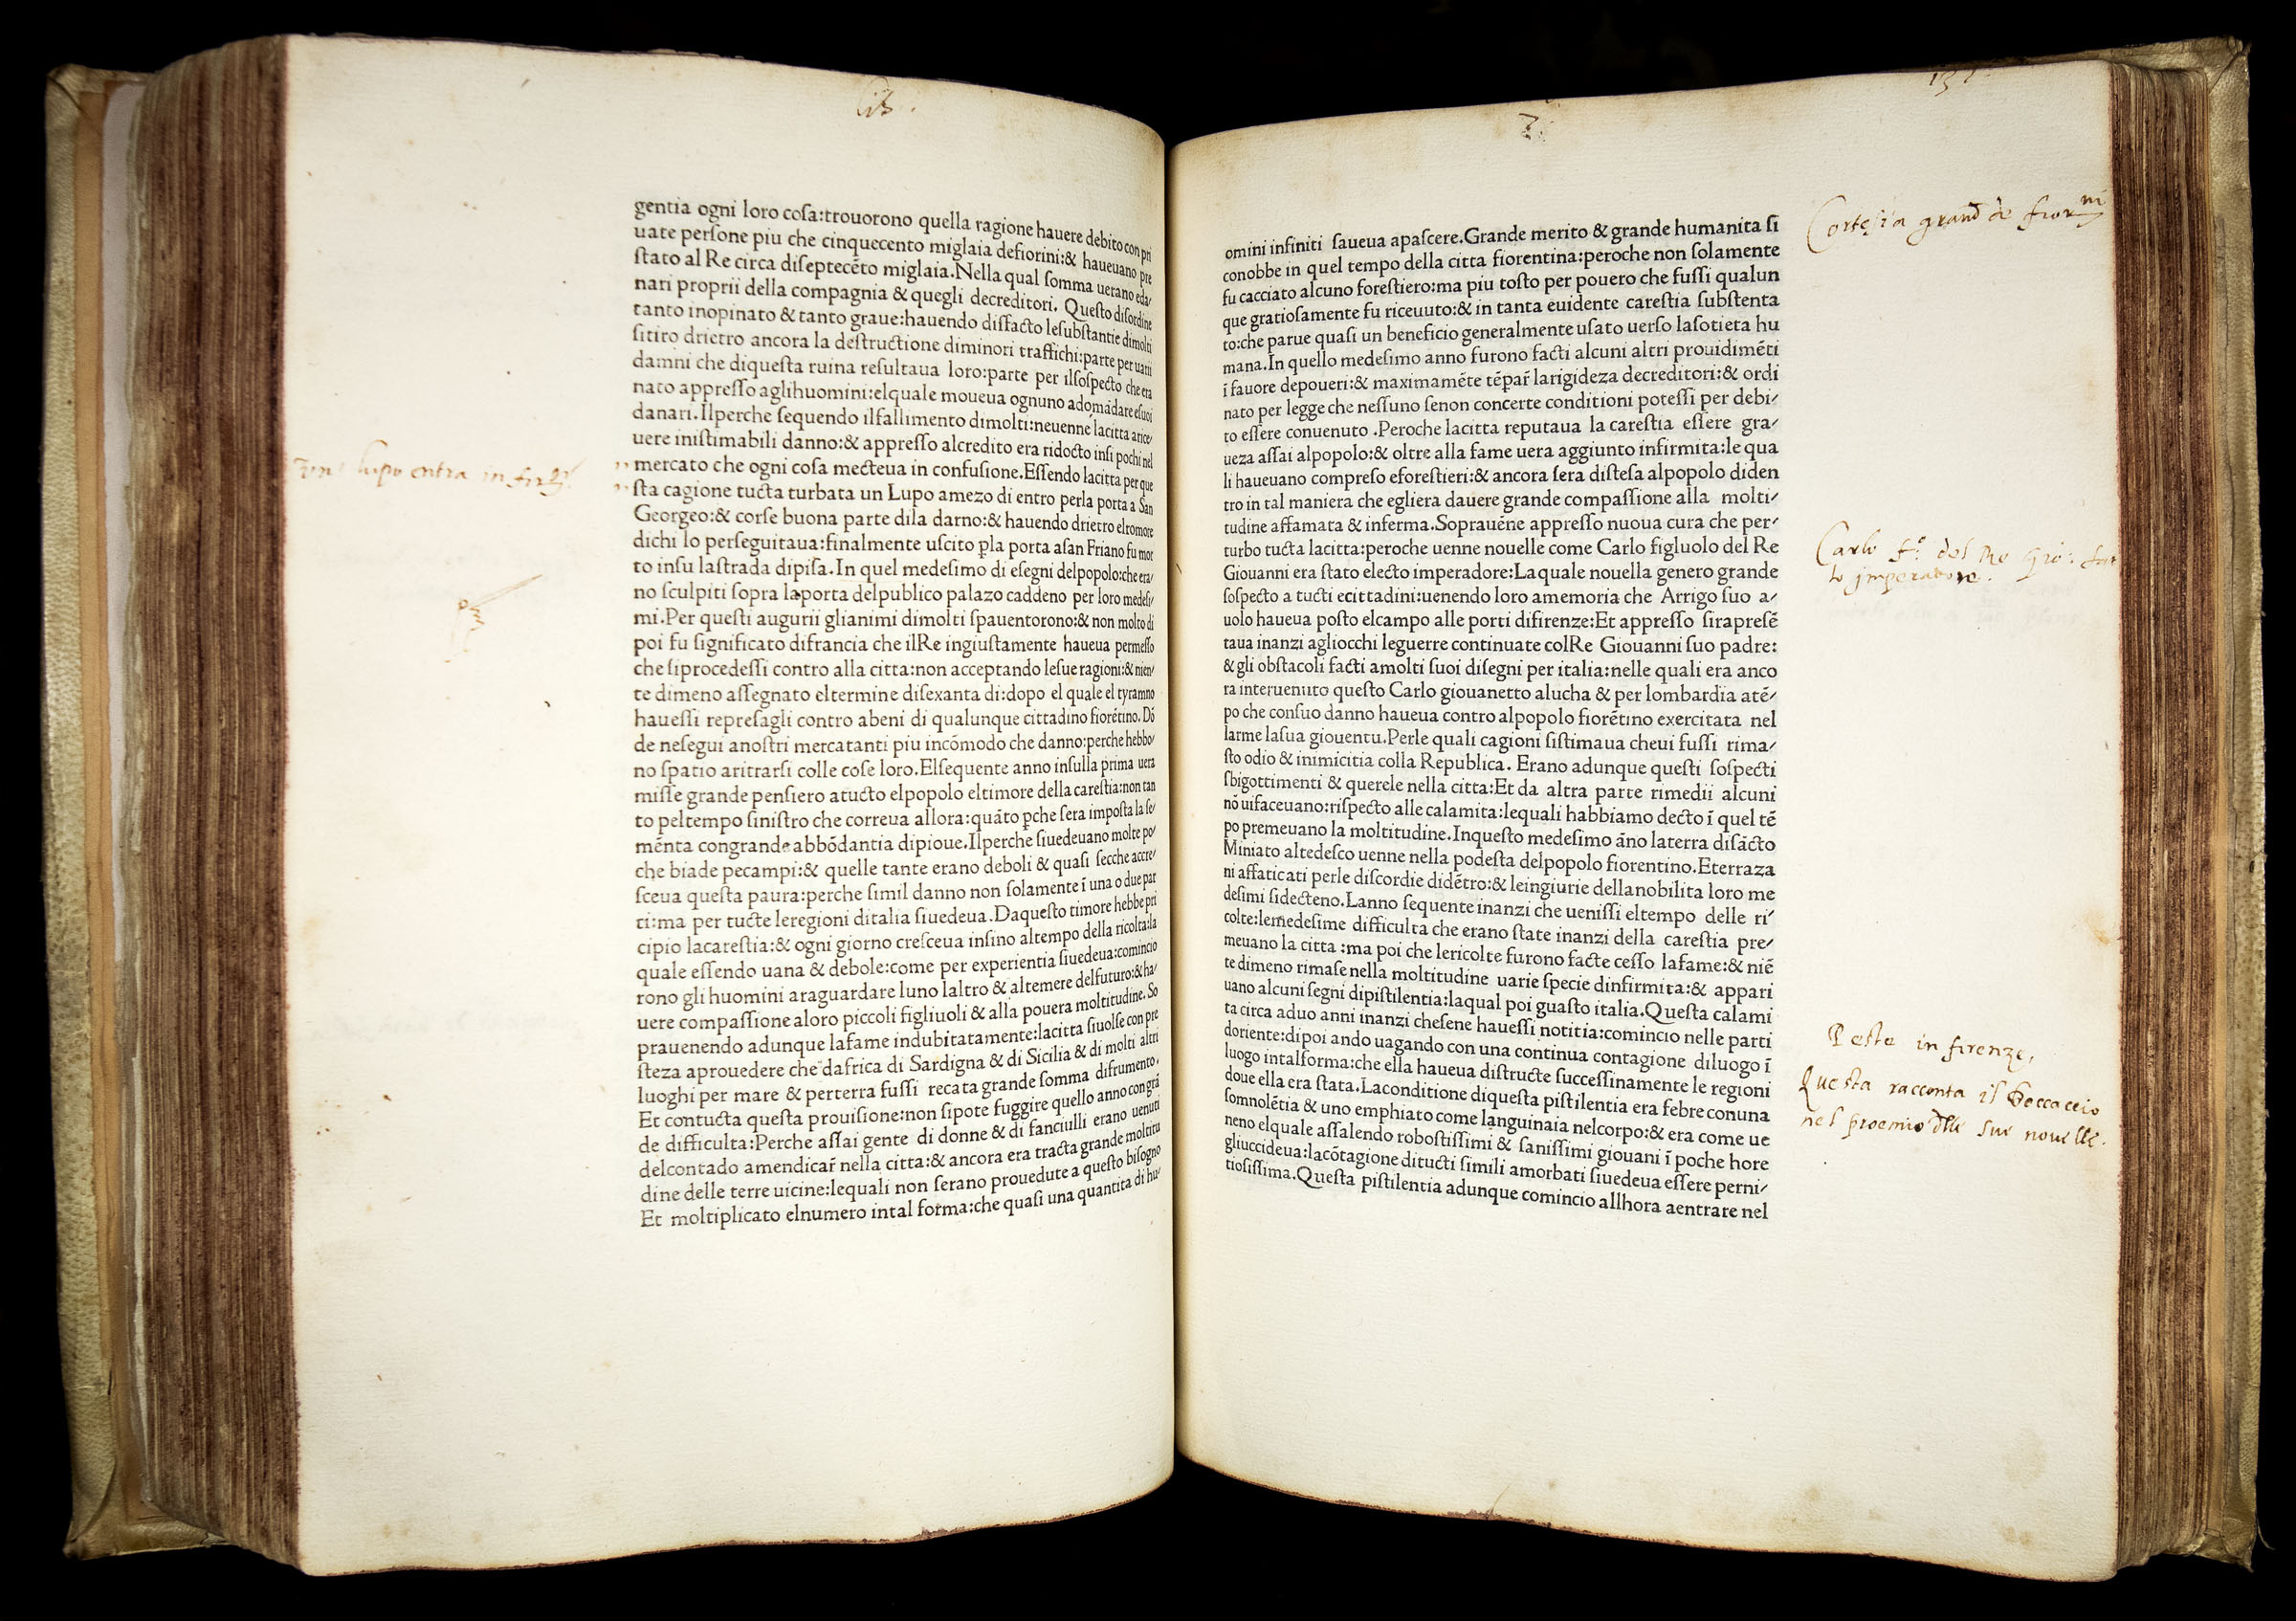 lib.
gentia ogni loro coſa:trouorono quella ragione hauere debito con pri
uate perſone piu che cinquecento miglaia defiorini:& haueuano pre
ſtato al Re circa diſeptecẽto miglaia.Nella qual ſomma uerano eda⸗
nari proprii della compagnia & quegli decreditori. Queſto diſordine
tanto inopinato & tanto graue:hauendo disfacto leſubſtantie dimolti
ſitiro drietro ancora la deſtructione diminori traffichi:parte per uarii
damni che diqueſta ruina reſultaua loro:parte per ilſoſpecto che era
nato appreſſo aglihuomini:elquale moueua ognuno adomãdare eſuoi
danari.Ilperche ſequendo ilfallimento dimolti:neuenne lacitta arice⸗
uere iniſtimabili danno:& appreſſo alcredito era ridocto inſi pochi nel
mercato che ogni coſa mecteua in confuſione.Eſſendo lacitta per que
ſta cagione tucta turbata un Lupo amezo di entro perla porta a San
Georgeo:& corſe buona parte dila darno:& hauendo drietro elromore
dichi lo perſeguitaua:finalmente uſcito ꝑla porta aſan Friano fu mor
to inſu laſtrada dipiſa.In quel medeſimo di eſegni delpopolo:che era⸗
no ſculpiti ſopra laporta delpublico palazo caddeno per loro medeſi⸗
mi.Per queſti augurii glianimi dimolti ſpauentorono:& non molto di
poi fu ſignificato difrancia che ilRe ingiuſtamente haueua permeſſo
che ſiprocedeſſi contro alla citta:non acceptando leſue ragioni:& nien⸗
te dimeno aſſegnato eltermine diſexanta di:dopo el quale el tyramno
haueſſi repreſagli contro abeni di qualunque cittadino fiorẽtino. Dõ
de neſegui anoſtri mercatanti piu incõmodo che danno:perche hebbo⸗
no ſpatio aritrarſi colle coſe loro.Elſequente anno inſulla prima uera
miſſe grande penſiero atucto elpopolo eltimore della careſtia:non tan
to peltempo ſiniſtro che correua allora:quãto ꝑche ſera impoſta la ſe⸗
mẽnta congrande abbõdantia dipioue.Ilperche ſiuedeuano molte po⸗
che biade pecampi:& quelle tante erano deboli & quaſi ſecche accre⸗
ſceua queſta paura:perche ſimil danno non ſolamente ĩ una o due par
ti:ma per tucte leregioni ditalia ſiuedeua.Daqueſto timore hebbe pri
cipio lacareſtia:& ogni giorno creſceua inſino altempo della ricolta:la
quale eſſendo uana & debole:come per experientia ſiuedeua:comincio
rono gli huomini araguardare luno laltro & altemere delfuturo:& ha⸗
uere compaſſione aloro piccoli figliuoli & alla pouera moltitudine. So
prauenendo adunque lafame indubitatamente:lacitta ſiuolſe con pre
ſteza aprouedere che dafrica di Sardigna & di Sicilia & di molti altri
luoghi per mare & perterra fuſſi recata grande ſomma difrumento.
Et contucta queſta prouiſione:non ſipote fuggire quello anno con grã
de difficulta:Perche aſſai gente di donne & di fanciulli erano uenuti
delcontado amendicar̃ nella citta:& ancora era tracta grande moltitu
dine delle terre uicine:lequali non ſerano prouedute a queſto biſogno
Et moltiplicato elnumero intal forma:che quaſi una quantita di hu⸗
lupo entra in
7.
omini infiniti ſaueua apaſcere.Grande merito & grande humanita ſi
conobbe in quel tempo della citta fiorentina:peroche non ſolamente
fu cacciato alcuno foreſtiero:ma piu toſto per pouero che fuſſi qualun
que gratioſamente fu riceuuto:& in tanta euidente careſtia ſubſtenta
to:che parue quaſi un beneficio generalmente uſato uerſo laſotieta hu
mana.In quello medeſimo anno furono facti alcuni altri prouidimẽti
ĩ fauore depoueri:& maximamẽte tẽꝑar̃ larigideza decreditori:& ordi
nato per legge che neſſuno ſenon concerte conditioni poteſſi per debi⸗
to eſſere conuenuto .Peroche lacitta reputaua la careſtia eſſere gra⸗
ueza aſſai alpopolo:& oltre alla fame uera aggiunto infirmita:le qua
li haueuano compreſo eforeſtieri:& ancora ſera diſteſa alpopolo diden
tro in tal maniera che egliera dauere grande compaſſione alla molti⸗
tudine affamata & inferma.Soprauẽne appreſſo nuoua cura che per⸗
turbo tucta lacitta:peroche uenne nouelle come Carlo figluolo del Re
Giouanni era ſtato electo imperadore:Laquale nouella genero grande
ſoſpecto a tucti ecittadini:uenendo loro amemoria che Arrigo ſuo a⸗
uolo haueua poſto elcampo alle porti difirenze:Et appreſſo ſirapreſẽ
taua inanzi agliocchi leguerre continuate colRe Giouanni ſuo padre:
& gli obſtacoli facti amolti ſuoi diſegni per italia:nelle quali era anco
ra interuenuto queſto Carlo giouanetto alucha & per lombardia atẽ⸗
po che conſuo danno haueua contro alpopolo fiorẽtino exercitata nel
larme laſua giouentu.Perle quali cagioni ſiſtimaua cheui fuſſi rima⸗
ſto odio & inimicitia colla Republica. Erano adunque queſti ſoſpecti
ſbigottimenti & querele nella citta:Et da altra parte rimedii alcuni
nõ uifaceuano:riſpecto alle calamita:lequali habbiamo decto ĩ quel tẽ
po premeuano la moltitudine.Inqueſto medeſimo ãno laterra diſãcto
Miniato altedeſco uenne nella podeſta delpopolo fiorentino.Eterraza
ni affaticati perle diſcordie didẽtro:& leingiurie dellanobilita loro me
deſimi ſidecteno.Lanno ſequente inanzi che ueniſſi eltempo delle ri⸗
colte:lemedeſime difficulta che erano ſtate inanzi della careſtia pre⸗
meuano la citta :ma poi che lericolte furono facte ceſſo lafame:& niẽ
te dimeno rimaſe nella moltitudine uarie ſpecie dinfirmita:& appari
uano alcuni ſegni dipiſtilentia:laqual poi guaſto italia.Queſta calami
ta circa aduo anni inanzi cheſene haueſſi notitia:comincio nelle parti
doriente:dipoi ando uagando con una continua contagione diluogo ĩ
luogo intalforma:che ella haueua diſtructe ſucceſſinamente le regioni
doue ella era ſtata.Laconditione diqueſta piſtilentia era febre conuna
ſomnolẽtia & uno emphiato come languinaia nelcorpo:& era come ue
neno elquale aſſalendo roboſtiſſimi & ſaniſſimi giouani ĩ poche hore
gliuccideua:lacõtagione ditucti ſimili amorbati ſiuedeua eſſere perni⸗
tioſiſſima.Queſta piſtilentia adunque comincio allhora aentrare nel
Cortesia grand de fior.ni
Carlo f.o del Re Gio: fat
to imperatore.
Peste in firenze,
Questa racconta il Boccaccio
nel proemio dlle sue novelle.